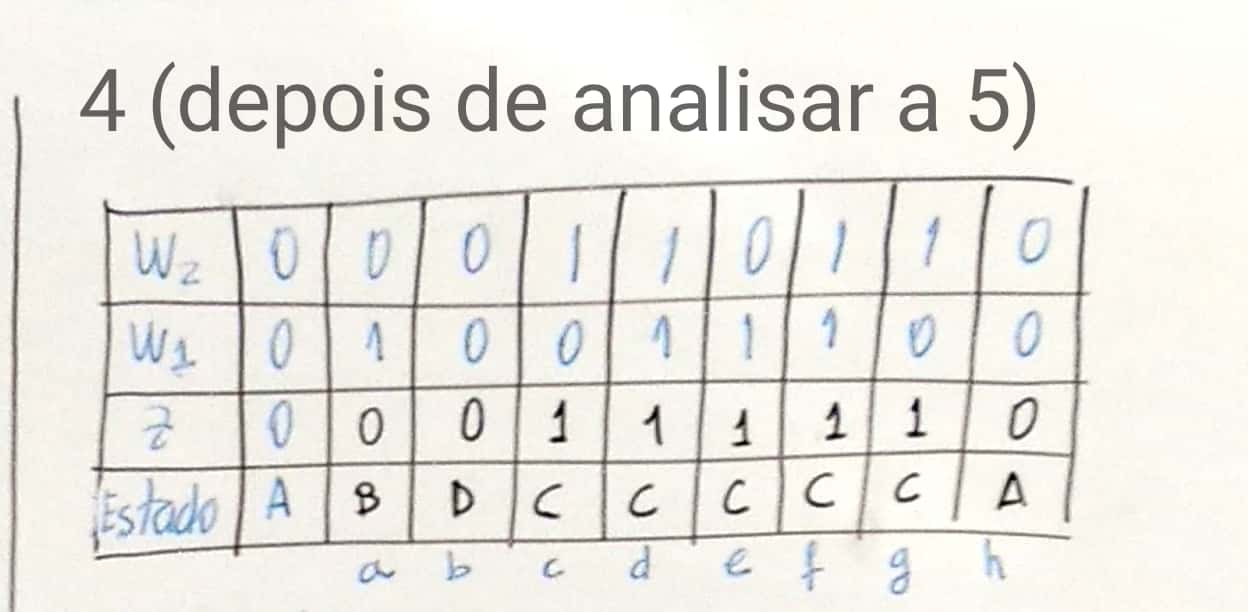 4 (depois de analisar a 5)
W2 0 0 0 1 1 0 1 1 0
W1 0 1 0 0 1 1 1 0 0
z 0 0 0 1 1 1 1 1 0
Estado A B D C C C C C A
a b c d e f g h